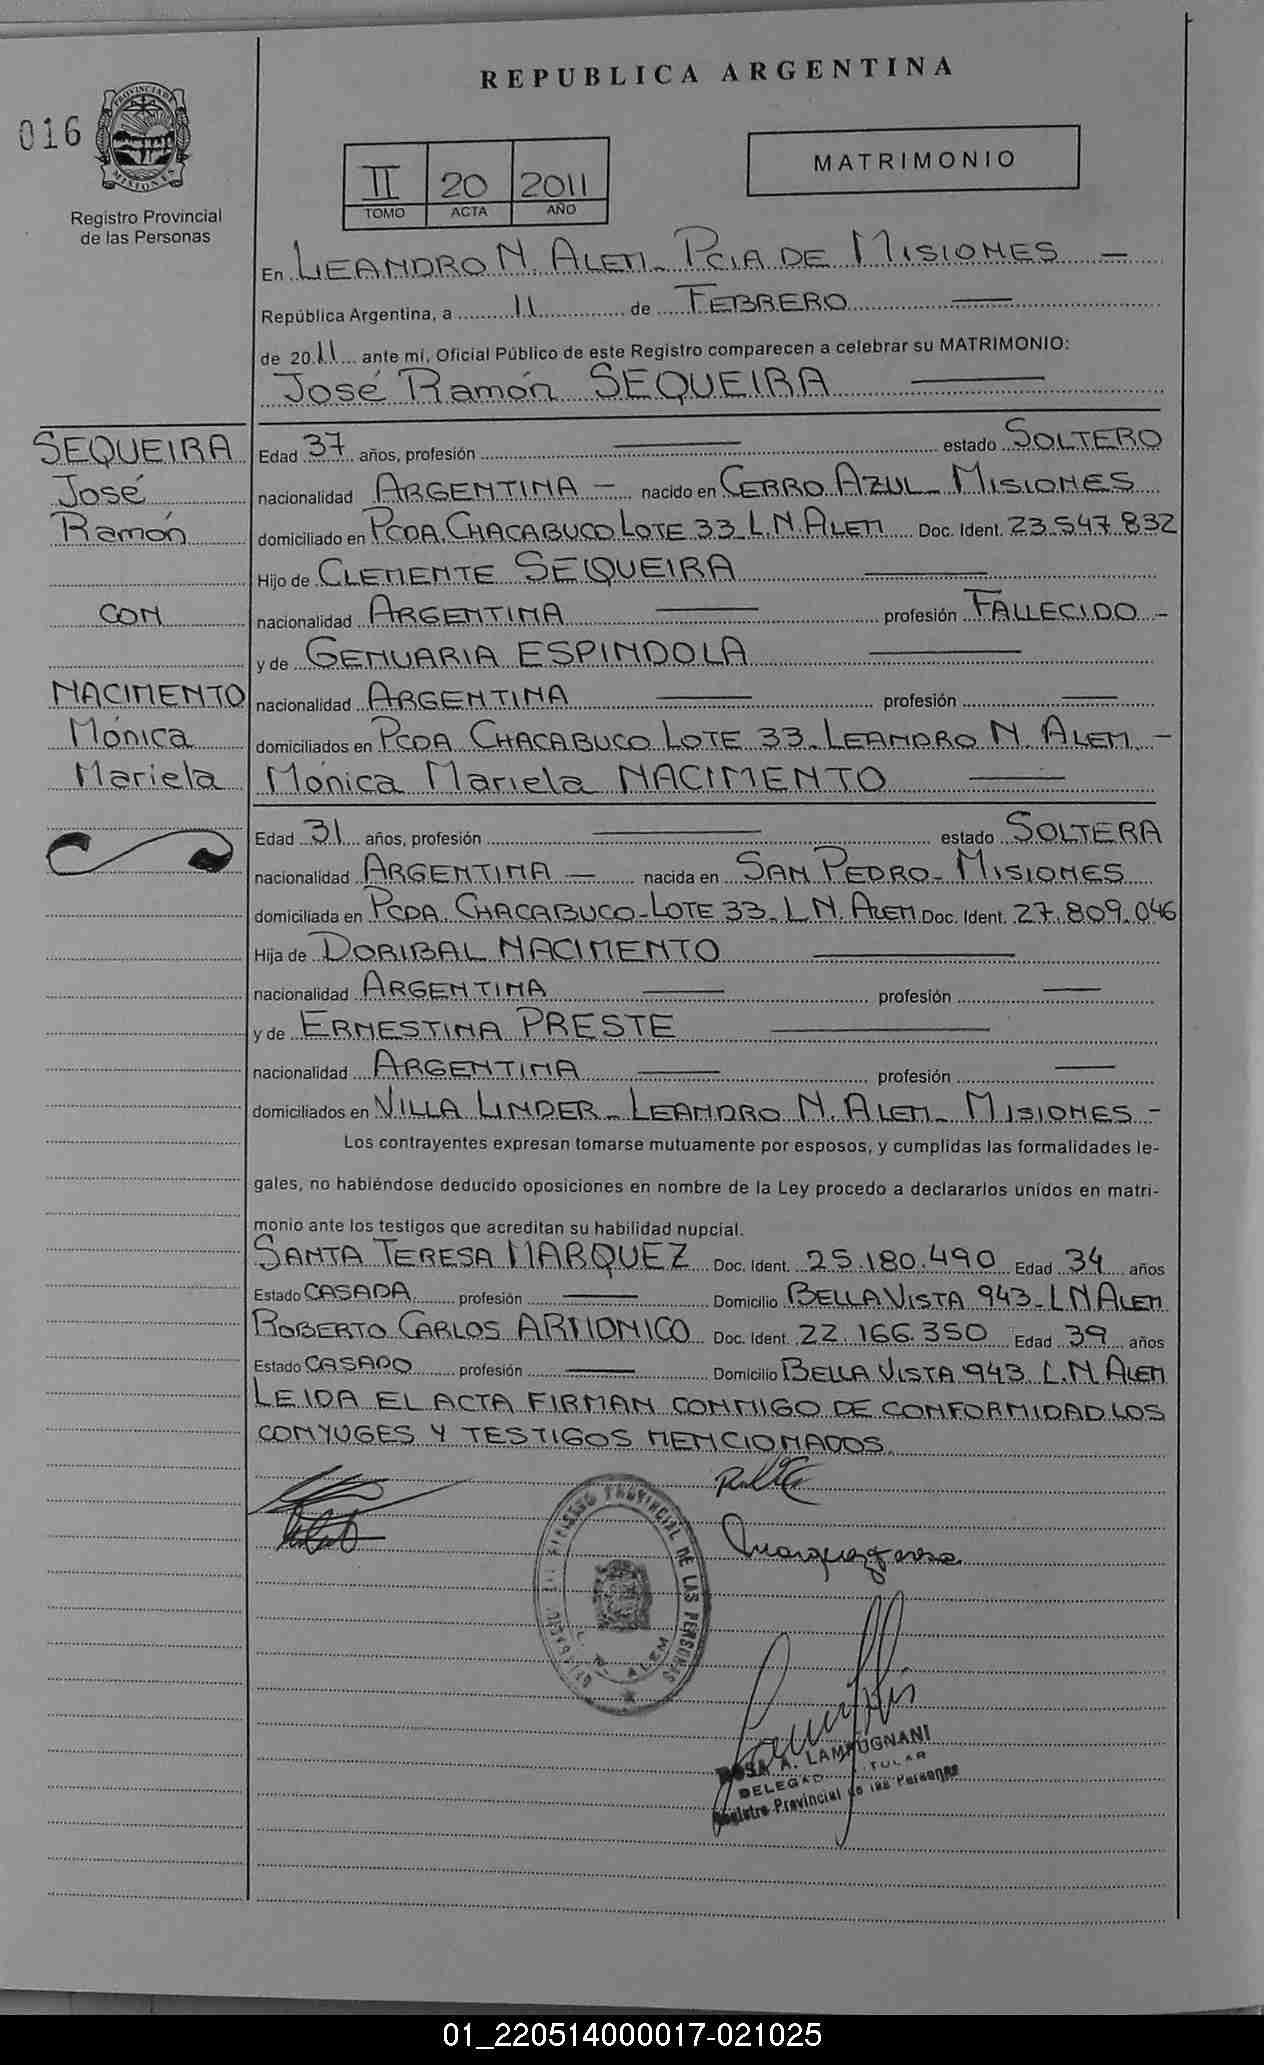 REPUBLICA ARGENTINA
016
PROVINCIA DE
MISIONES
Registro Provincial
de las Personas
II 20 2011
TOMO ACTA AÑO
MATRIMONIO
En LEANDRO N. ALEM_ PCIA DE MISIONES —
República Argentina, a 11 de FEBRERO —
de 2011 ante mí, Oficial Público de este Registro comparecen a celebrar su MATRIMONIO:
José Ramón SEQUEIRA —
SEQUEIRA
José
Ramón
CON
NACIMENTO
Mónica
Mariela
Edad 37 años, profesión — estado SOLTERO
nacionalidad ARGENTINA — nacido en CERRO AZUL_ MISIONES
domiciliado en PCDA. CHACABUCO LOTE 33_ L.N. ALEM Doc. Ident. 23.547.832
Hijo de CLEMENTE SEQUEIRA —
nacionalidad ARGENTINA — profesión FALLECIDO -
y de GENUARIA ESPINDOLA —
nacionalidad ARGENTINA — profesión —
domiciliados en PCDA CHACABUCO LOTE 33_ LEANDRO N. ALEM -
Mónica Mariela NACIMENTO —
Edad 31 años, profesión — estado SOLTERA
nacionalidad ARGENTINA — nacida en SAN PEDRO_ MISIONES
domiciliada en PCDA CHACABUCO_LOTE 33_ L N. ALEM Doc. Ident. 27.809.046
Hija de DORIBAL NACIMENTO —
nacionalidad ARGENTINA — profesión —
y de ERNESTINA PRESTE —
nacionalidad ARGENTINA — profesión —
domiciliados en VILLA LINDER_ LEANDRO N. ALEM_ MISIONES -
Los contrayentes expresan tomarse mutuamente por esposos, y cumplidas las formalidades le-
gales, no habiéndose deducido oposiciones en nombre de la Ley procedo a declararlos unidos en matri-
monio ante los testigos que acreditan su habilidad nupcial.
SANTA TERESA MARQUEZ Doc. Ident. 25.180.490 Edad 34 años
Estado CASADA profesión — Domicilio BELLA VISTA 943_ L N ALEM
ROBERTO CARLOS ARMONICO Doc. Ident. 22.166.350 Edad 39 años
Estado CASADO profesión — Domicilio BELLA VISTA 943. L.N ALEM
LEIDA EL ACTA FIRMAN CONMIGO DE CONFORMIDAD LOS
CONYUGES Y TESTIGOS MENCIONADOS.
PROVINCIAL DE LAS PERSONAS
L. N. ALEM
ROSA A. LAMPUGNANI
DELEGADO TITULAR
Registro Provincial de las Personas
01_220514000017-021025